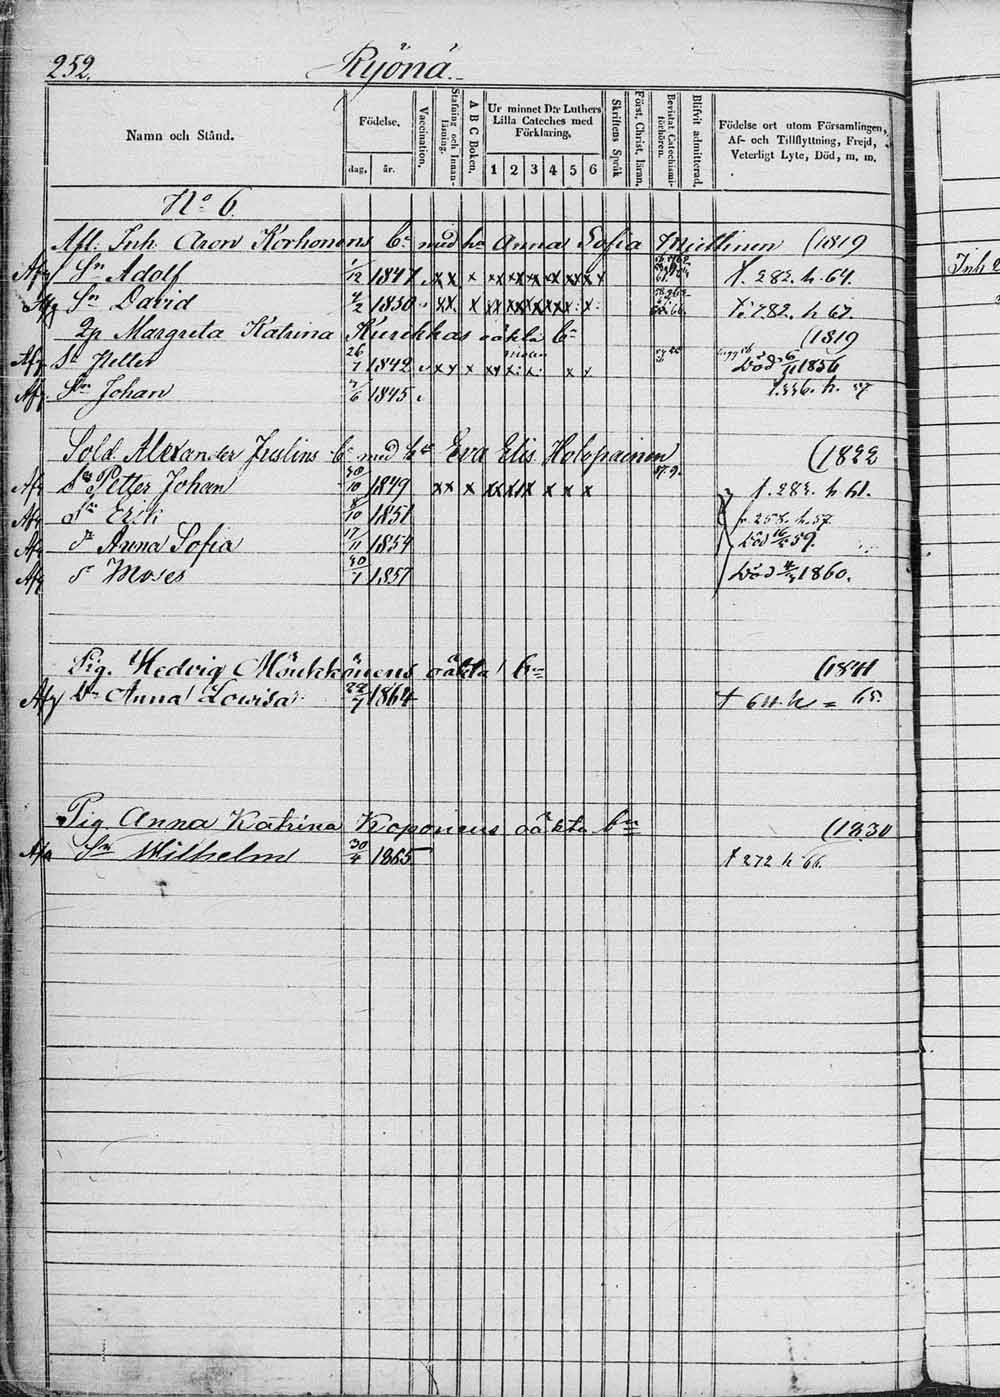 252.
Ryönä.
Namn och Stånd.
Födelse.
dag. år.
Vaccination.
Stafning och Innanläsning.
A B C Boken.
Ur minnet D:r Luthers Lilla Cateches med Förklaring.
1 2 3 4 5 6
Skriftens Språk
Först. Christ. läran.
Bevistat Catechismiförhören.
Blifvit admitterad.
Födelse ort utom Församlingen, Af- och Tillflyttning, Frejd, Veterligt Lyte, Död, m. m.
No 6.
Afl. Inh. Aron Korhonens bn med h Anna Sofia Miettinen (1819
Afg Sn Adolf 1/12 1847 f. 282. h. 64.
Afg Sn David 4/2 1850 282. h 67.
Qp Margreta Katrina Kurkkas oäkta bn (1819
Afg Heller 26/7 1842 Död 6/11 1856
Afg Sn Johan 7/6 1845 h. 57
Sold. Alexander Juslins bn med h Eva Elis. Holopainen (1822
Afg Petter Johan 30/10 1849 f. 282. h 61.
Afg Erik 8/10 1851 f. 258. h. 57.
Afg Anna Sofia 17/11 1854 Död 59
Afg Moses 30/1 1857 Död 1860.
Pig. Hedvig Mönkkönens oäkta bn (1841
Afg Dn Anna Lowisa 22/7 1864 f 64. h = 65.
Pig Anna Katrina Koponens oäkta bn (1830
Afg Sn Wilhelm 30/4 1865 f 272 h 66.
Inh